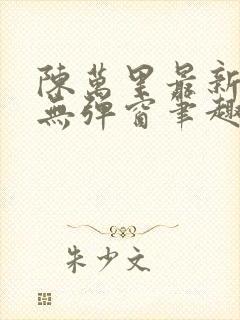 陳萬里最新
無彈窗筆趣
朱少文